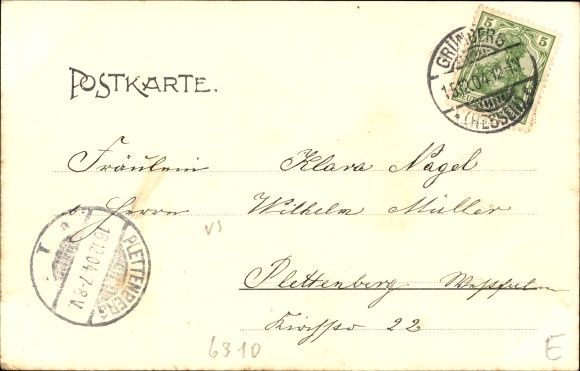 POSTKARTE.
5 5
GRÜNBERG
15.12.04.12-1N.
* (HESSEN)
Fräulein Klara Nagel
b. Herrn Wilhelm Müller
Plettenberg Westfalen
Kirchstr 22
PLETTENBERG
16.12.04.7-8.V.
6310
E